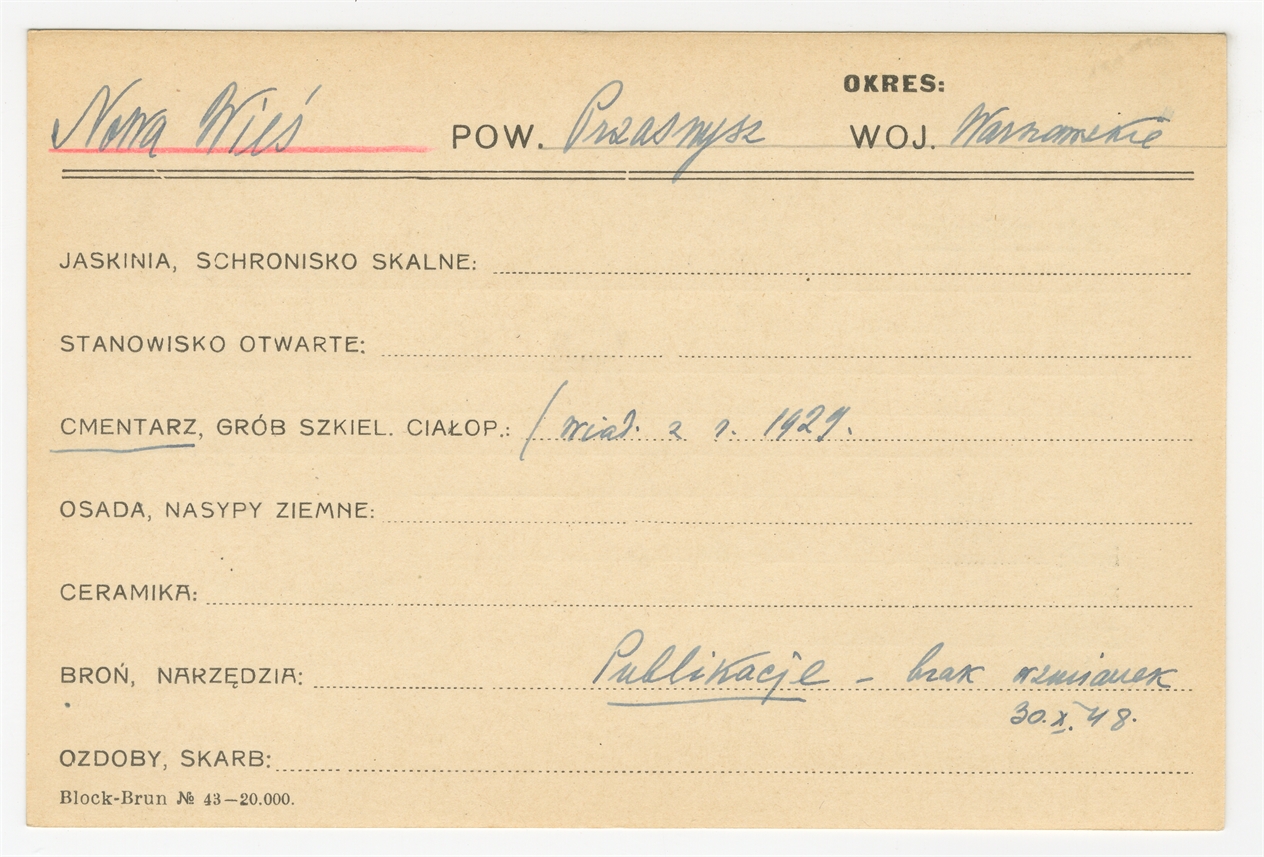 OKRES:
Nowa Wieś POW. Przasnysz WOJ. Warszawskie
JASKINIA, SCHRONISKO SKALNE:
STANOWISKO OTWARTE:
CMENTARZ, GRÓB SZKIEL. CIAŁOP.: / wiad. z r. 1929.
OSADA, NASYPY ZIEMNE:
CERAMIKA:
BROŃ, NARZĘDZIA: Publikacje – brak wzmianek
30.X.48.
OZDOBY, SKARB:
Block-Brun № 43–20.000.